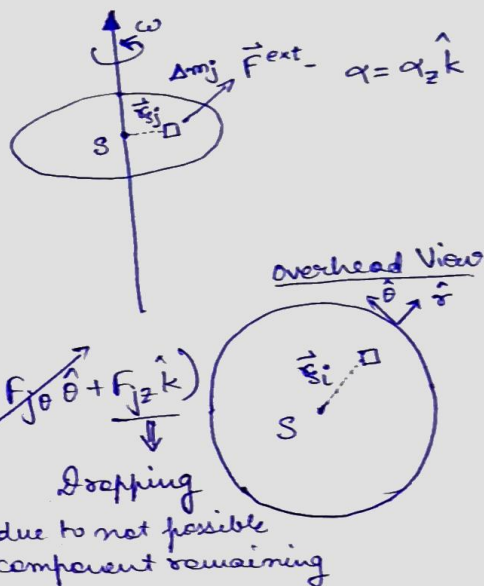 ω
Δmj F⃗ ext- α = α_z k̂
r⃗sj
S
Overhead View
θ̂ r̂
F_jθ θ̂ + F_jz k̂)
r⃗si
S
⇓
Dropping
due to not possible
component remaining